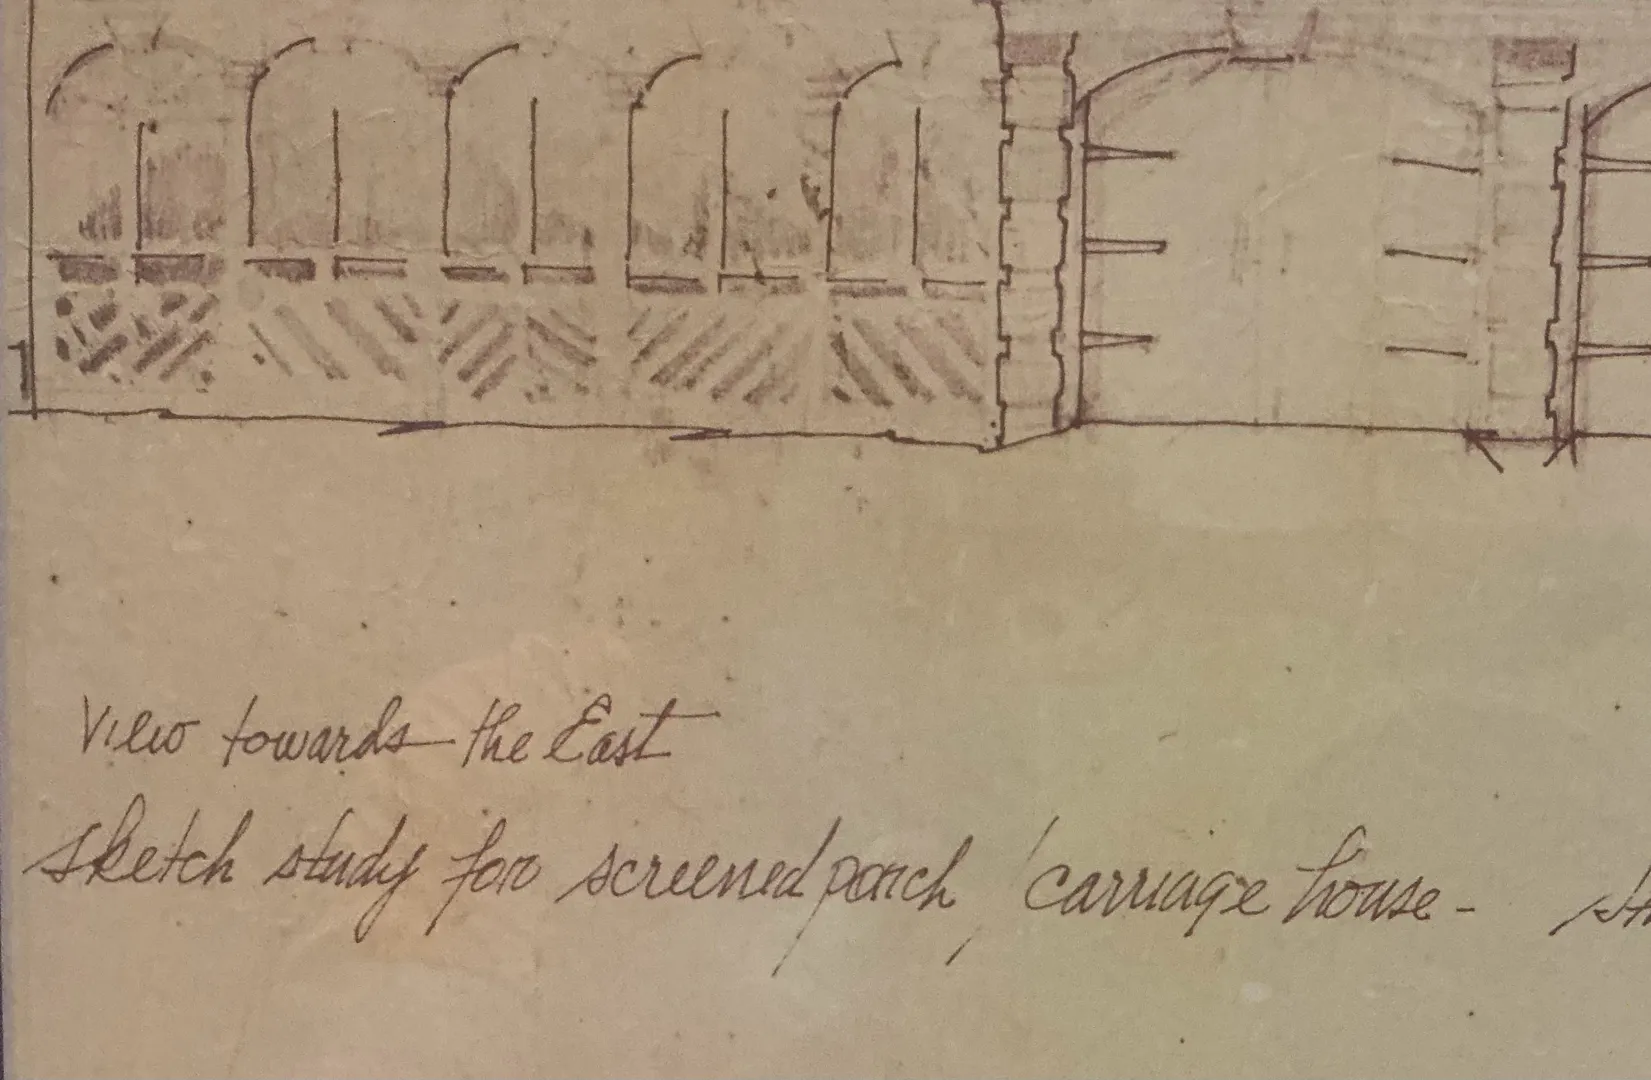 View towards the East
sketch study for screened porch / carriage house -